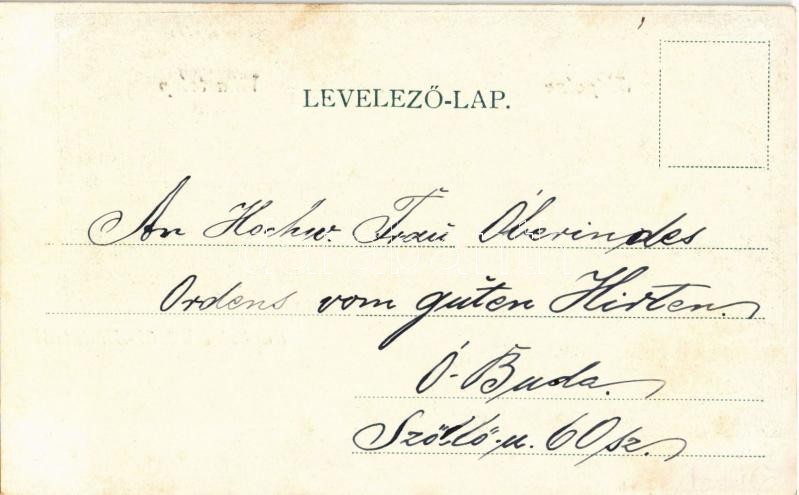 LEVELEZŐ-LAP.
An Hochw. Frau Oberin des
Ordens vom guten Hirten.
Ó-Buda.
Szőllő-u. 60 sz.